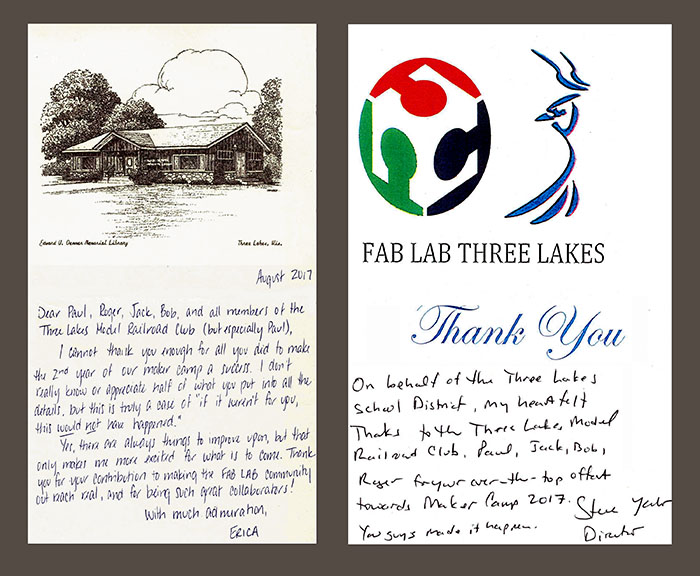 Edward U. Demmer Memorial Library
Three Lakes, Wis.
August 2017
Dear Paul, Roger, Jack, Bob, and all members of the
Three Lakes Model Railroad Club (but especially Paul),
I cannot thank you enough for all you did to make
the 2nd year of our maker camp a success. I don't
really know or appreciate half of what you put into all the
details, but this is truly a case of "if it weren't for you,
this would not have happened."
Yes, there are always things to improve upon, but that
only makes me more excited for what is to come. Thank
you for your contribution to making the FAB LAB community
out reach real, and for being such great collaborators!
With much admiration,
ERICA
FAB LAB THREE LAKES
Thank You
On behalf of the Three Lakes
School District, my heartfelt
Thanks to the Three Lakes Model
Railroad Club, Paul, Jack, Bob,
Roger for your over-the-top effort
towards Maker Camp 2017.
You guys made it happen.
Steve
Director